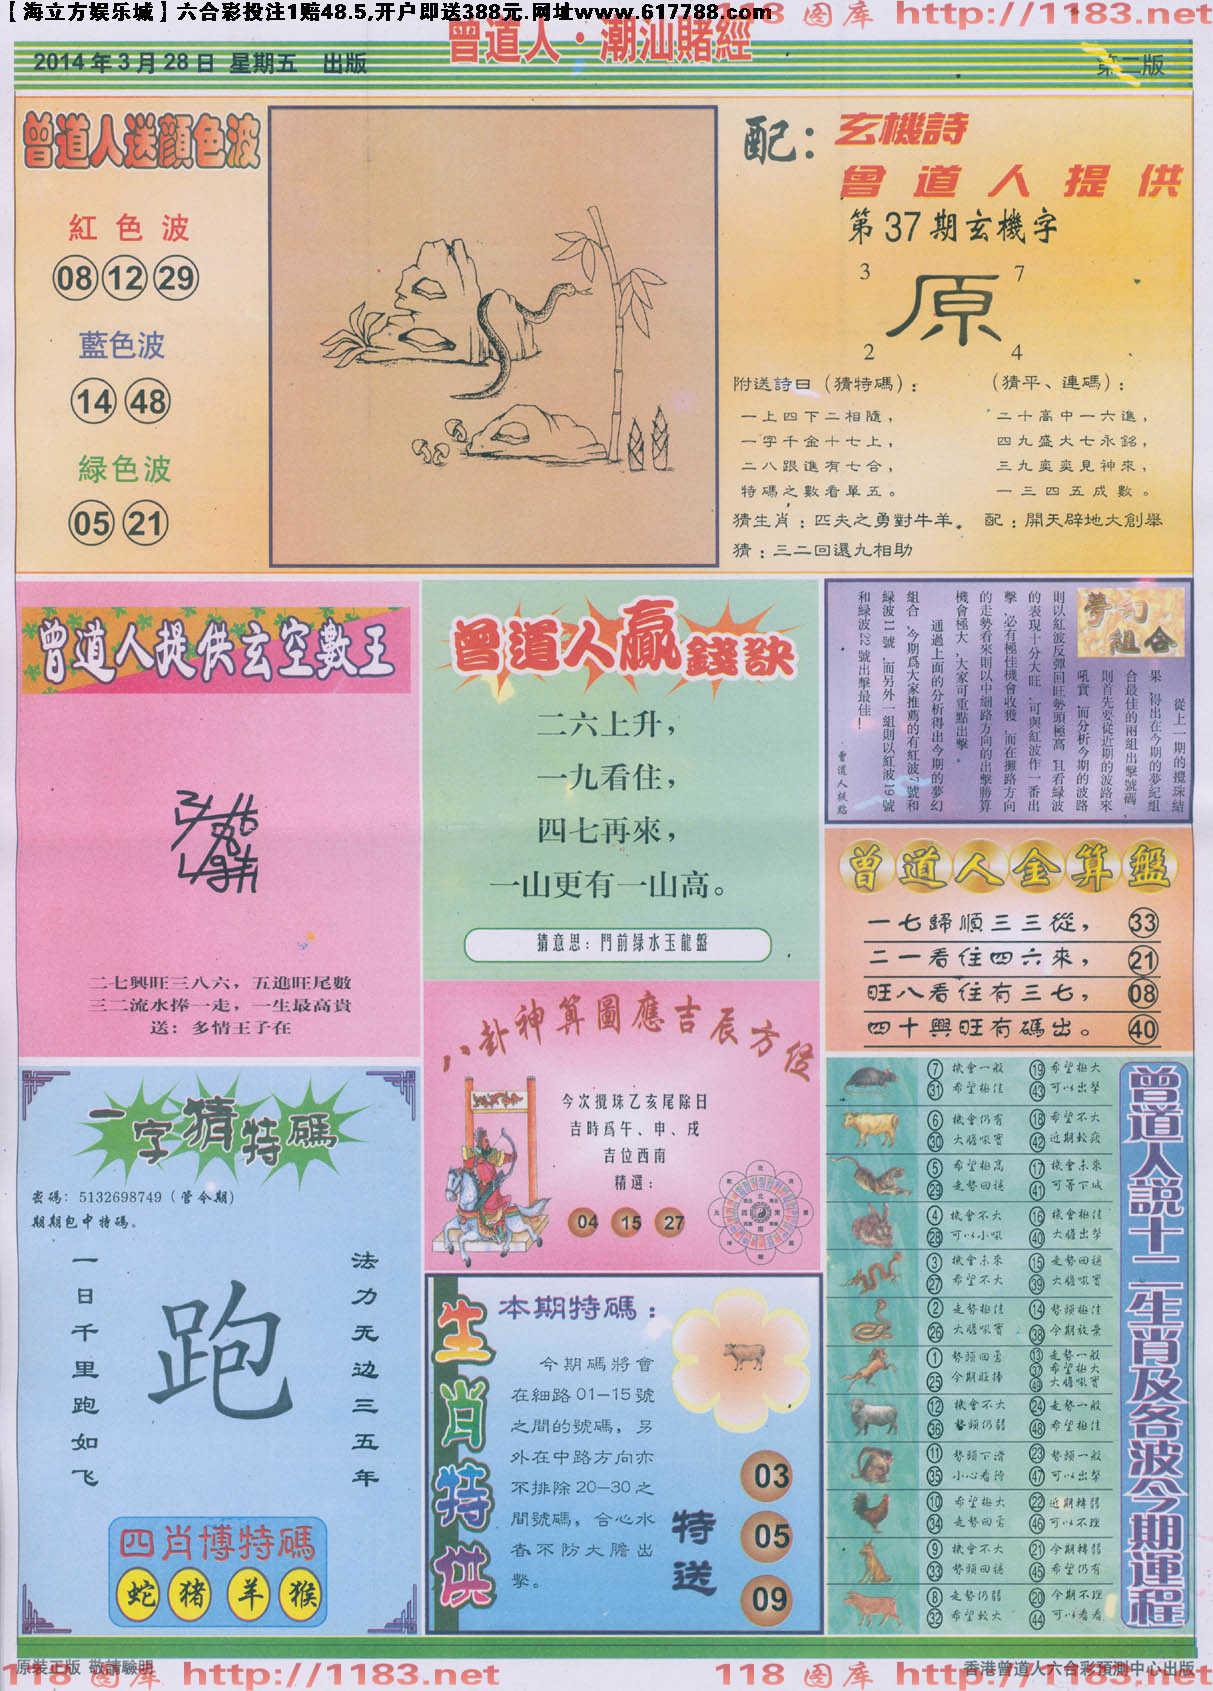 【海立方娱乐城】六合彩投注1赔48.5,开户即送388元.网址www.617788.com
118 图库 http://1183.net
曾道人·潮汕賭經
2014年3月28日 星期五 出版
第二版
曾道人送顔色波
紅色波
08 12 29
藍色波
14 48
緑色波
05 21
配：玄機詩
曾道人提供
第37期玄機字
3 7
原
2 4
附送詩曰（猜特碼）：
一上四下二相隨，
一字千金十七上，
二八跟進有七合，
特碼之數看單五。
（猜平、連碼）：
二十高中一六進，
四九盛大七永銘，
三九奕奕見神來，
一三四五成數。
猜生肖：匹夫之勇對牛羊。 配：開天辟地大創舉
猜：三二回還九相助
曾道人提供玄空數王
二七興旺三八六，五進旺尾數
三二流水捧一走，一生最高貴
送：多情王子在
曾道人贏錢訣
二六上升，
一九看住，
四七再來，
一山更有一山高。
猜意思：門前绿水玉龍盤
夢幻組合
從上一期的攪珠結
果，得出在今期的夢幻組
合最佳的兩組出擊號碼，
則首先要從近期的波路來
吼實，而分析今期的波路
則以紅波反彈回旺勢頭極高，且看緑波
的表現十分大旺，可與紅波作一番出
擊，必有極佳機會收獲，而在攤路方向
的走勢看來則以中細路方向的出擊勝算
機會極大，大家可重點出擊。
通過上面的分析得出今期的夢幻
組合，今期爲大家推薦的有紅波7號和
緑波11號，而另外一組則以紅波19號
和緑波22號出擊最佳！
曾道人金算盤
一七歸順三三從， 33
二一看住四六來， 21
旺八看住有三七， 08
四十興旺有碼出。 40
八卦神算圖應吉辰方位
今次攪珠乙亥尾除日
吉時爲午、申、戌
吉位西南
精選：
04 15 27
一字猜特碼
密碼：5132698749（管今期）
期期包中特碼。
一日千里跑如飞
跑
法力无边三五年
四肖博特碼
蛇 猪 羊 猴
生肖特供
本期特碼：
今期碼將會
在細路01—15號
之間的號碼，另
外在中路方向亦
不排除20—30之
間號碼，合心水
者不防大膽出
擊。
特送
03
05
09
曾道人説十二生肖及各波今期運程
7 機會一般 19 希望極大
31 希望極佳 43 可以出擊
6 機會仍有 18 希望不大
30 大膽吼實 42 近期較疲
5 希望極高 17 機會未來
29 走勢回穩 41 可等下城
4 機會不大 16 機會極佳
28 可以小吼 40 大膽出擊
3 機會未來 15 走勢回穩
27 希望不大 39 大膽吼實
2 走勢極佳 14 勢頭極佳
26 大膽吼實 38 今期放棄
1 勢頭回勇 13 走勢一般
37 希望極大
25 今期旺捧 49 大膽吼實
12 機會不大 24 走勢一般
36 勢頭仍弱 48 希望極佳
11 勢頭下滑 23 勢頭一般
35 小心看待 47 可以出擊
10 希望極大 22 近期轉弱
34 走勢回勇 46 可以不理
9 機會不大 21 今期轉弱
33 勢頭回穩 45 希望仍有
8 走勢仍弱 20 今期不理
32 希望較大 44 可以看看
原裝正版 敬請驗明
香港曾道人六合彩預測中心出版
118 图库 http://1183.net
118 图库 http://1183.net